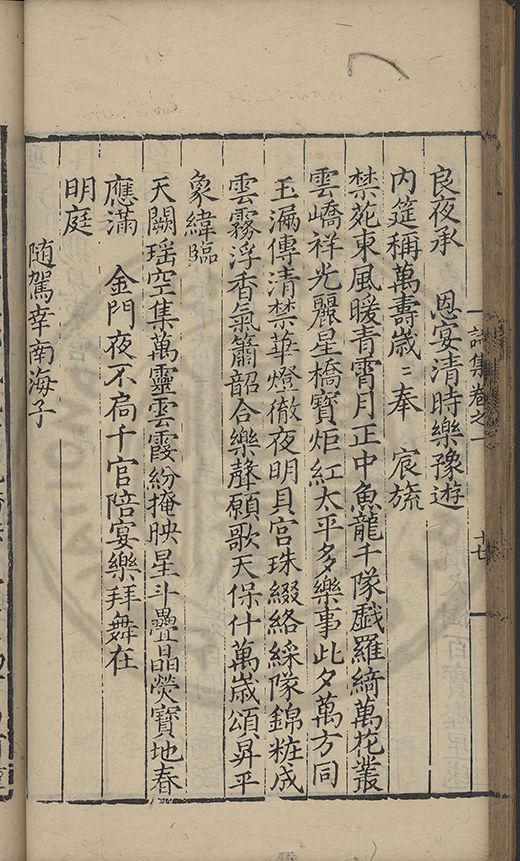 詩集卷之一 十七
良夜承 恩宴清時樂豫遊
内筵稱萬壽歲〻奉 宸旒
禁苑東風暖青霄月正中魚龍千隊戱羅綺萬花叢
雲嶠祥光麗星橋寶炬紅太平多樂事此夕萬方同
玉漏傳清禁華燈徹夜明貝宮珠綴絡綵隊錦粧成
雲霧浮香氣簫韶合樂聲願歌天保什萬歲頌昇平
象緯臨
天闕瑶空集萬靈雲霞紛掩映星斗疊晶熒寶地春
應滿 金門夜不扃千官陪宴樂拜舞在
明庭
随駕幸南海子